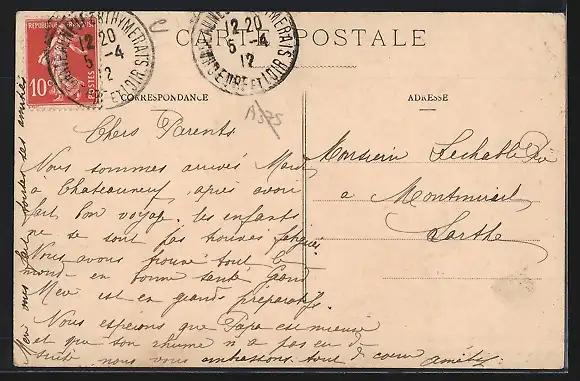 CARTE POSTALE
REPUBLIQUE FRANÇAISE
10c
POSTES
CHATEAUNEUF-EN-THYMERAIS
12 20
5 -4
12
EURE ET LOIR
12 20
5 -4
12
EURE ET LOIR
CORRESPONDANCE
ADRESSE
A375
Chers Parents
Nous sommes arrivés Mardi
a Chateauneuf apres avoir
fait bon voyage. les enfants
ne se sont pas trouvés fatigués
Nous avons trouvé tout le
monde en bonne santé Grand
Mère est en grands preparatifs.
Nous espérons que Papa est mieux
et que son rhume n'a pas eu de
suite nous vous embrassons tout de coeur
Monsieur Lechable
a Montmirail
Sarthe
vous fait toutes ses amitiés